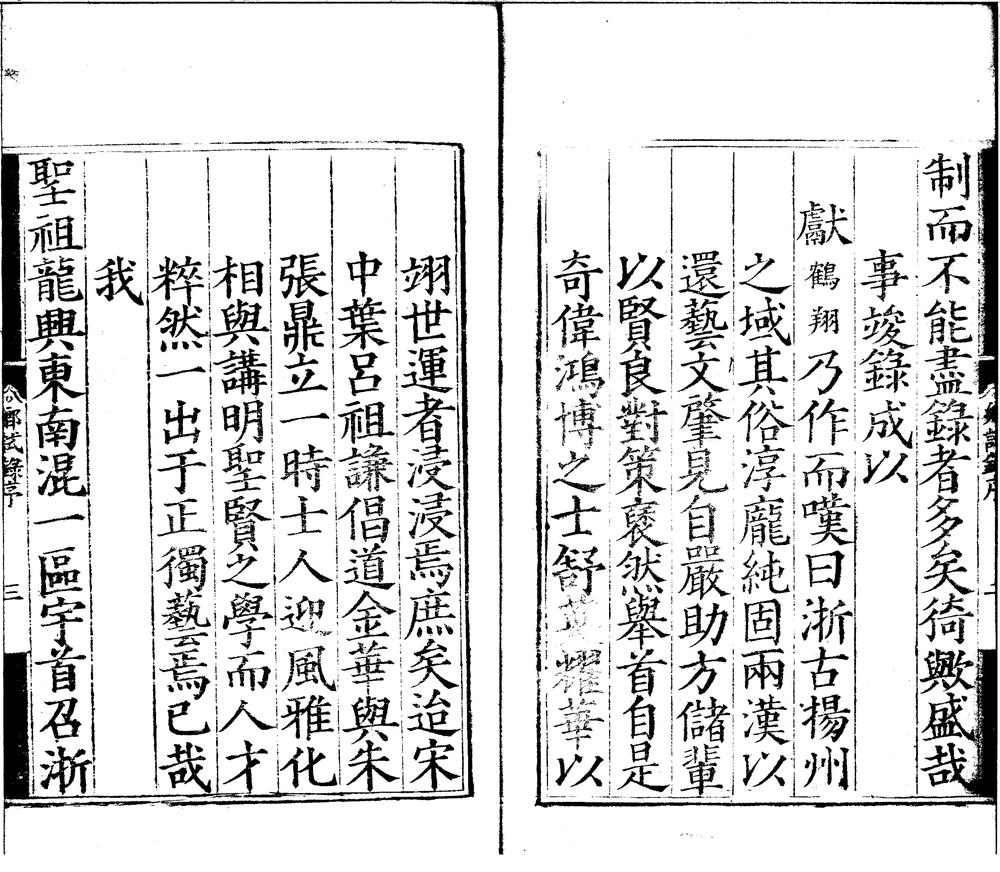 制而不能盡錄者多矣猗歟盛哉
事竣錄成以
獻鶴翔乃作而嘆曰浙古揚州
之域其俗淳龐純固兩漢以
還藝文肇見自嚴助方儲輩
以賢良對策裒然舉首自是
奇偉鴻博之士舒英耀華以
翊世運者浸浸焉庶矣迨宋
中葉呂祖謙倡道金華與朱
張鼎立一時士人迎風雅化
相與講明聖賢之學而人才
粹然一出于正獨藝焉已哉
我
聖祖龍興東南混一區宇首召浙
鄉試錄序
三